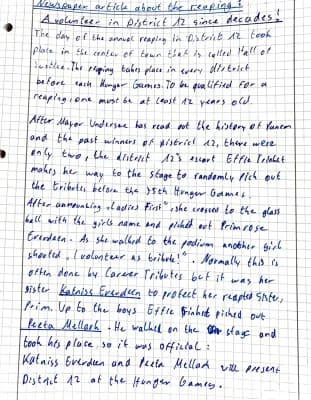 Newspaper article about the reaping:
A volunteer in District 12 since decades!
The day of the annual reaping in District 12 took
place in the center of town that is called Hall of
justice. The reaping takes place in every district
before each Hunger Games. To be qualified for a
reaping, one must be at least 12 years old.
After Mayor Undersee has read out the history of Panem
and the past winners of district 12, there were
only two, the district 12's escort Effie Trinket
makes her way to the stage to randomly pick out
the tributes before the 75th Hunger Games.
After announcing "Ladies First", she crosses to the glass
ball with the girls name and picked out Primrose
Everdeen. As she walked to the podium another girl
shouted, I volunteer as tribute!". Normally this is
often done by Career Tributes but it was her
sister Katniss Everdeen to protect her reaped sister,
Prim. Up to the boys Effie picked out
Peeta Mellark. He walked on the stage and
took his place so it was official:
Katniss Everdeen and Peeta Mellark will present
District 12 at the Hunger Games.